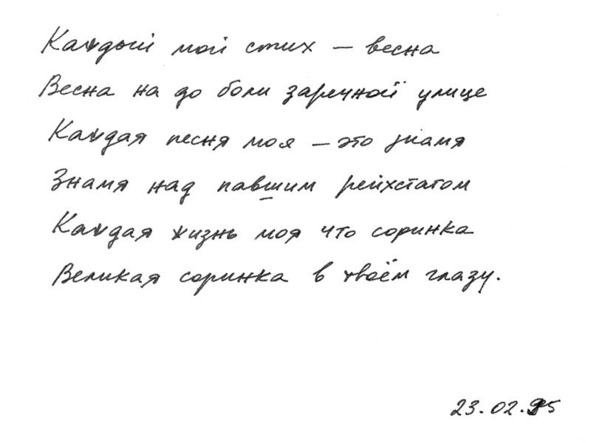 Каждый мой стих – весна
Весна на до боли заречной улице
Каждая песня моя – это знамя
Знамя над павшим рейхстагом
Каждая жизнь моя что соринка
Великая соринка в твоём глазу.
23.02.95